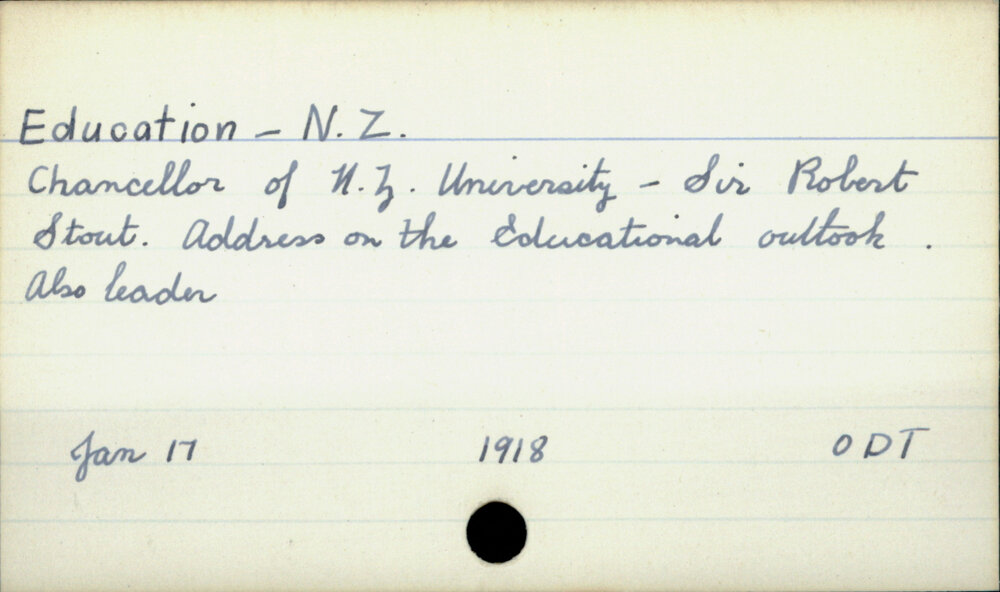 Education - N. Z.
Chancellor of N.Z. University - Sir Robert
Stout. Address on the Educational outlook.
Also leader
Jan 17 1918 ODT